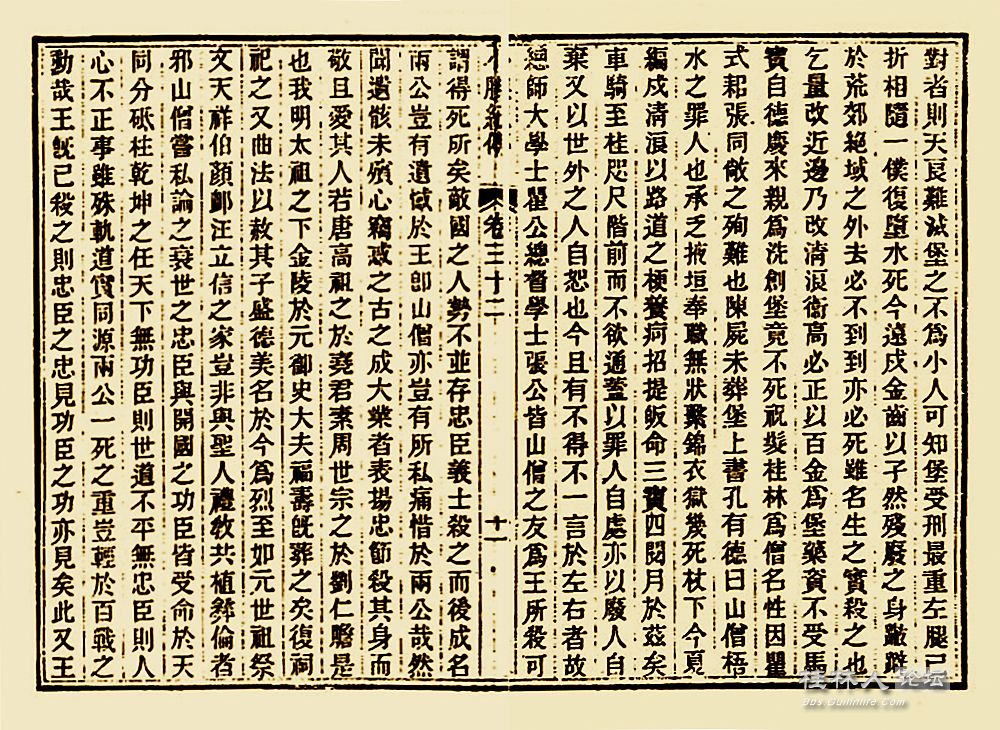 對者則天良難滅堡之不爲小人可知堡受刑最重左腿已
折相隨一僕復墮水死今遠戍金齒以孑然殘廢之身
於荒郊絶域之外去必不到到亦必死雖名生之實殺之也
乞量改近邊乃改清浪衞高必正以百金爲堡藥資不受馬
寶自德慶來親爲洗創堡竟不死祝髮桂林爲僧名性因瞿
式耜張同敞之殉難也陳屍未葬堡上書孔有德曰山僧梧
水之罪人也承乏掖垣奉職無狀繫錦衣獄幾死杖下今夏
編戍清浪以路道之梗養疴招提皈命三寶四閱月於茲矣
車騎至桂咫尺階前而不欲通蓋以罪人自處亦以廢人自
棄又以世外之人自恕也今且有不得不一言於左右者故
總師大學士瞿公總督學士張公皆山僧之友爲王所殺可
小腆紀傳 卷三十二 十一
謂得死所矣敵國之人勢不並存忠臣義士殺之而後成名
兩公豈有遺憾於王卽山僧亦豈有所私痛惜於兩公哉然
聞遺骸未殯心竊惑之古之成大業者表揚忠節殺其身而
敬且愛其人若唐高祖之於堯君素周世宗之於劉仁贍是
也我明太祖之下金陵於元御史大夫福壽旣葬之矣復祠
祀之又曲法以赦其子盛德美名於今爲烈至如元世祖祭
文天祥伯顏卹汪立信之家豈非與聖人禮敎共植彝倫者
邪山僧嘗私論之衰世之忠臣與開國之功臣皆受命於天
同分砥柱乾坤之任天下無功臣則世道不平無忠臣則人
心不正事雖殊軌道實同源兩公一死之重豈輕於百戰之
動哉王旣已殺之則忠臣之忠見功臣之功亦見矣此又王
桂林人论坛
Bbs.Guilinlife.Com